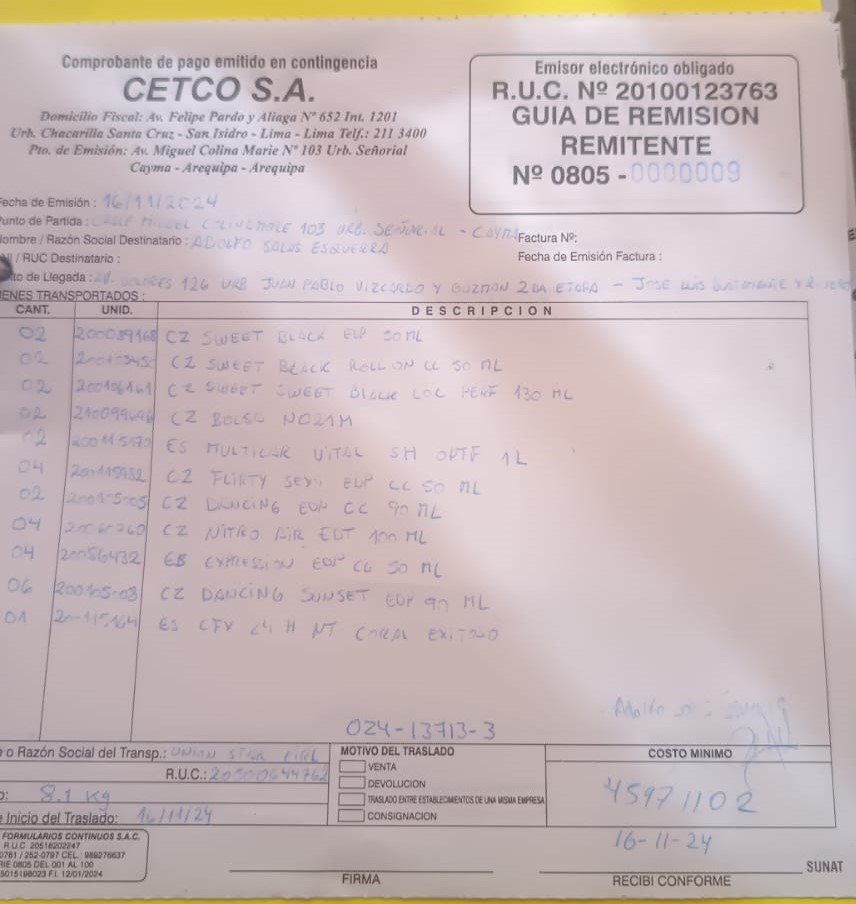 Comprobante de pago emitido en contingencia
CETCO S.A.
Domicilio Fiscal: Av. Felipe Pardo y Aliaga N° 652 Int. 1201
Urb. Chacarilla Santa Cruz - San Isidro - Lima - Lima Telf.: 211 3400
Pto. de Emisión: Av. Miguel Colina Marie N° 103 Urb. Señorial
Cayma - Arequipa - Arequipa
Emisor electrónico obligado
R.U.C. Nº 20100123763
GUIA DE REMISION
REMITENTE
Nº 0805 - 0000009
Fecha de Emisión : 16/11/2024
Punto de Partida : CALLE MIGUEL 103 URB. SEÑORIAL - CAYMA
Factura Nº:
Nombre / Razón Social Destinatario : ADOLFO SALAS ESQUERRA
Fecha de Emisión Factura :
/ RUC Destinatario :
de Llegada : AV. DOLORES 126 URB JUAN PABLO VIZCARDO Y GUZMAN 2DA ETAPA - JOSE LUIS BUSTAMANTE Y
BIENES TRANSPORTADOS :
CANT. UNID. DESCRIPCION
02 200089168 CZ SWEET BLACK EDP 50ML
02 CZ SWEET BLACK ROLL ON CC 50 ML
02 200106161 CZ SWEET SWEET BLACK LOC PERF 130 ML
02 210099696 CZ BOLSO NO21M
02 200115170 ES MULTICAR VITAL SH OPTF 1L
04 200115982 CZ FLIRTY SEXY EDP CC 50 ML
02 200105005 CZ DANCING EDP CC 90 ML
04 CZ NITRO AIR EDT 100 ML
04 20056432 EB EXPRESSION EDP CC 50 ML
06 200105003 CZ DANCING SUNSET EDP 90 ML
01 200115164 ES CFX 24 H NT CORAL EXITOSO
024-13713-3
o Razón Social del Transp.: UNION STAR EIRL
R.U.C.: 20500644762
8.1 Kg
Inicio del Traslado: 16/11/24
MOTIVO DEL TRASLADO
VENTA
DEVOLUCION
TRASLADO ENTRE ESTABLECIMIENTOS DE UNA MISMA EMPRESA
CONSIGNACION
COSTO MINIMO
45971102
16-11-24
FORMULARIOS CONTINUOS S.A.C.
R.U.C. 20516202247
0781 / 252-0797 CEL.: 989276637
RIE 0805 DEL 001 AL 100
5015198023 F.I. 12/01/2024
FIRMA
RECIBI CONFORME
SUNAT